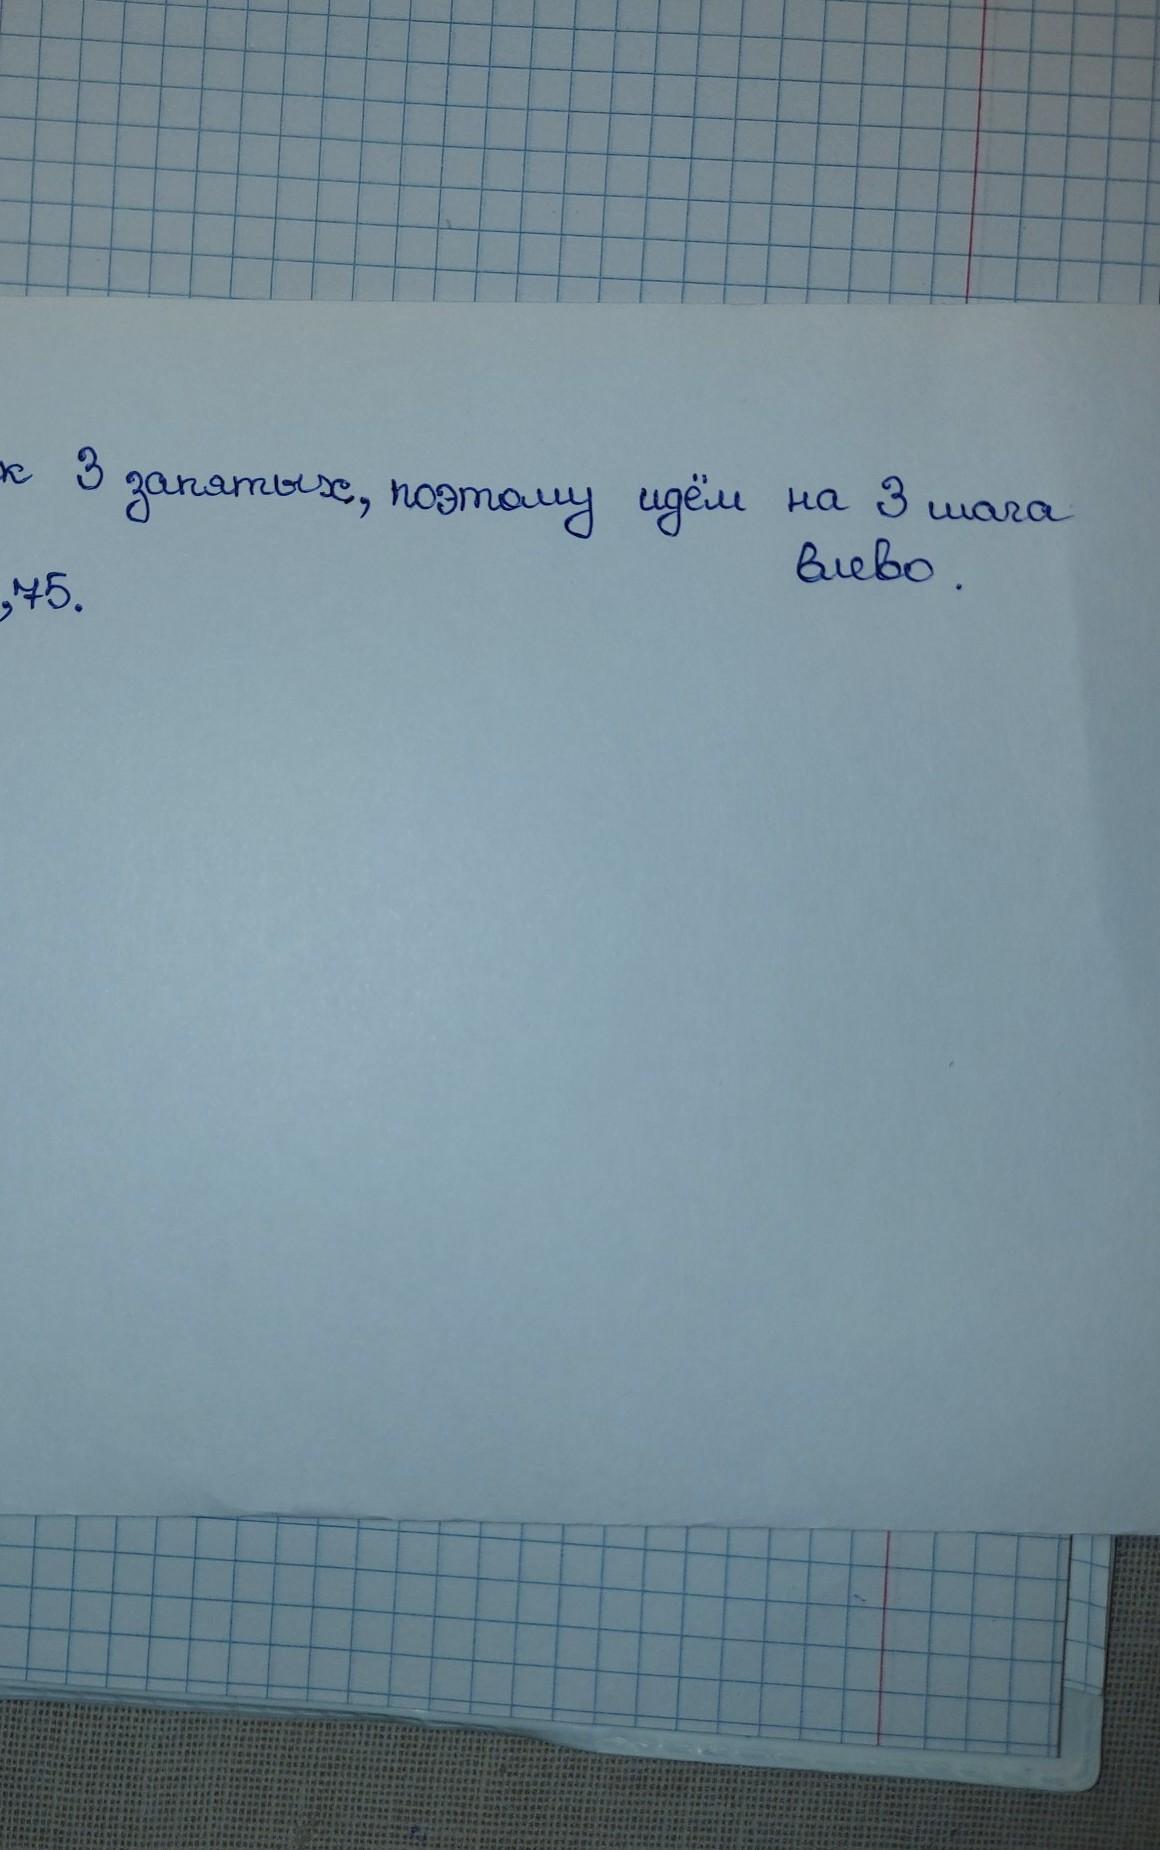 к 3 запятых, поэтому идём на 3 шага
влево.
,75.